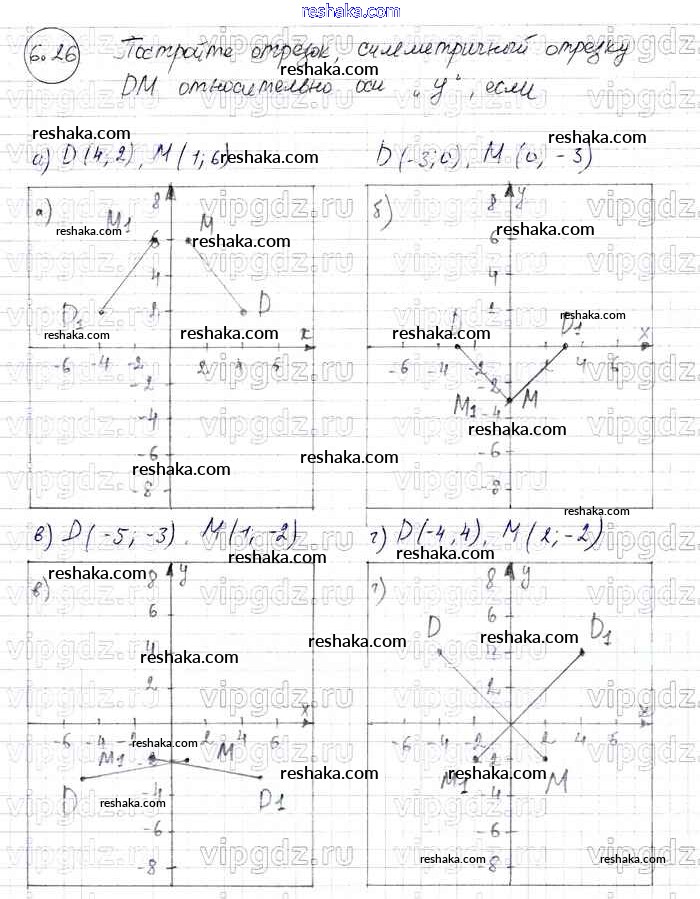 reshaka.com
6.26 Постройте отрезок, симметричный отрезку
DM относительно оси "y", если
а) D(4; 2), M(1; 6)
D(-3; 0), M(0, -3)
а)
8
M1 M
6
4
D1 2 D
x
-6 -4 -2 2 4 6
-2
-4
-6
-8
б)
8 y
6
4
2
D D1 x
-6 -4 -2 2 4 6
-2
M1 -4 M
-6
-8
в) D(-5; -3), M(1; -2)
г) D(-4, 4), M(2; -2)
в)
8 y
6
4
2
x
-6 -4 -2 2 4 6
M1 -2 M
D D1
-4
-6
-8
г)
8 y
6
D D1
4
2
x
-6 -4 -2 2 4 6
-2
M1 M
-4
-6
-8
reshaka.com
vipgdz.ru